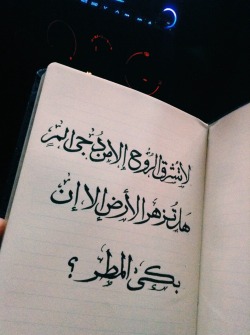 لا تشرق الروح إلا من دجى ألم
هل تزهر الأرض إلا إن
بكى المطر ؟